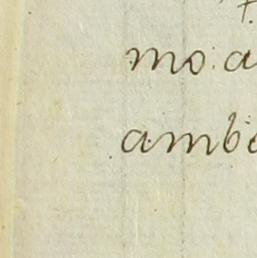 mo: a
ambe